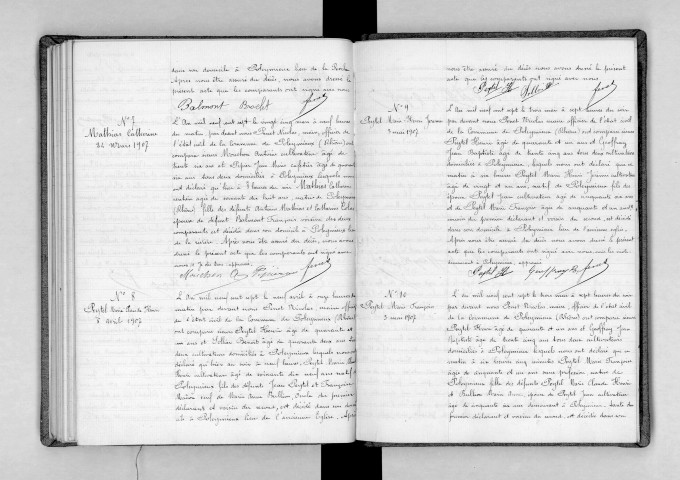 dans son domicile à Poleymieux lieu de la Roche
Après nous être assuré du décès, nous avons dressé le
présent acte que les comparants ont signé avec nous
Balmont Brochet
N° 7
Mathias Catherine
24 Mars 1907
L'An mil neuf cent sept le vingt cinq mars à neuf heures
du matin, par devant nous Pinet Nicolas, maire, officier de
l'état civil de la Commune de Poleymieux (Rhône) ont
comparu
cultivateur âgé de
trente six ans et
ans tous deux domiciliés à Poleymieux lesquels nous
ont déclaré que hier à 8 heures du soir Mathias Catherine
âgée de soixante dix huit ans, native de Poleymieux
(Rhône) fille des défunts Antoine Mathias et Catherine
épouse de défunt Balmont François voisine des deux
comparants est décédée dans son domicile à Poleymieux lieu
de la rivière. Après nous être assuré du décès, nous avons
dressé le présent acte que les comparants ont signé avec
nous
N° 8
Peytel Marie Claude Henri
8 avril 1907
L'An mil neuf cent sept le neuf avril à onze heures du
matin par devant nous Pinet Nicolas, maire officier
de l'état civil de la Commune de Poleymieux (Rhône)
ont comparu Peytel Henri âgé de quarante et
un ans et Benoît âgé de quarante deux ans tous
deux cultivateurs domiciliés à Poleymieux lesquels nous ont
déclaré qu'hier au soir à neuf heures, Peytel Marie Claude
Henri cultivateur âgé de soixante dix neuf ans natif de
Poleymieux fils des défunts Jean Peytel et Françoise
veuf de Marie Anne Bullion Oncle du premier
déclarant et voisin du second, est décédé dans son domicile
à Poleymieux lieu de l'ancienne Eglise, Après
nous être assuré du décès nous avons dressé le présent
acte que les comparants ont signé avec nous
Peytel H
N° 9
Peytel Marie Henri Jérome
3 mai 1907
L'An mil neuf cent sept le trois mai à sept heures du soir
par devant nous Pinet Nicolas, maire, officier de l'état civil
de la Commune de Poleymieux (Rhône) ont comparu
Peytel Henri âgé de quarante et un ans et Geoffray
Jean Baptiste âgé de trente cinq ans tous deux cultivateurs
domiciliés à Poleymieux, lesquels nous ont déclaré que ce
matin à six heures Peytel Marie Henri Jérome cultivateur
âgé de vingt et un ans, natif de Poleymieux fils de
Peytel Jean cultivateur âgé de cinquante six ans
et de Peytel Marie Françoise âgée de cinquante et un ans
neveu du premier déclarant et voisin du second, est décédé
dans son domicile à Poleymieux lieu de l'ancienne église,
Après nous être assuré du décès, nous avons dressé le présent
acte que les comparants ont signé avec nous
Peytel H Geoffray B
N° 10
Peytel Marie Françoise
3 mai 1907
L'An mil neuf cent sept le trois mai à sept heures du soir
par devant nous Pinet Nicolas, maire, officier de l'état civil
de la Commune de Poleymieux (Rhône) ont comparu
Peytel Henri âgé de quarante et un ans et Geoffray Jean
Baptiste âgé de trente cinq ans tous deux cultivateurs
domiciliés à Poleymieux lesquels nous ont déclaré que ce
matin à six heures Peytel Marie Françoise
âgée de cinquante et un ans sans profession native de
Poleymieux fille des défunts Peytel Marie Claude Henri
et Bullion Marie Anne, épouse de Peytel Jean cultivateur
âgé de cinquante six ans demeurant à Poleymieux, du
premier déclarant et voisine du second, est décédée dans son